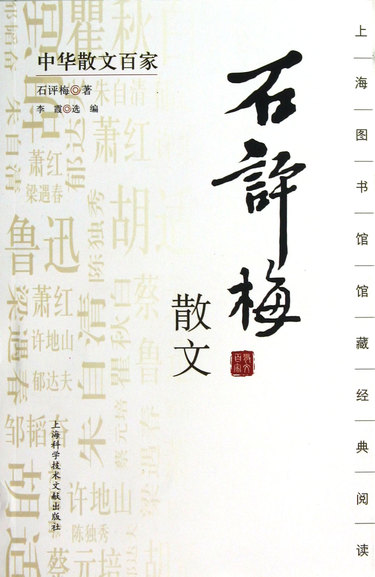 中华散文百家
石评梅◎著
李霞◎选编
石評梅
散文
散文百家
上海图书馆馆藏经典阅读
上海科学技术文献出版社
瞿秋
朱自清
萧红
郁达
萧红
梁遇春
胡
陈独秀
鲁迅
蔡
梁遇春
萧红
许地山
郁达夫
朱自清
瞿秋白
鲁
邹韬
蔡元培
梁遇春
胡适
许地山
陈独秀
蔡元培